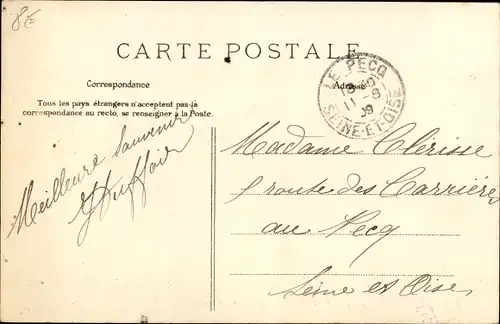 8E
CARTE POSTALE
Correspondance
Adresse
Tous les pays étrangers n'acceptent pas la
correspondance au recto, se renseigner à la Poste.
LE PECQ
11 - 8
09
SEINE-ET-OISE
Meilleure Souvenir
Madame Clérisse
route des Carrières
au Pecq
Seine et Oise